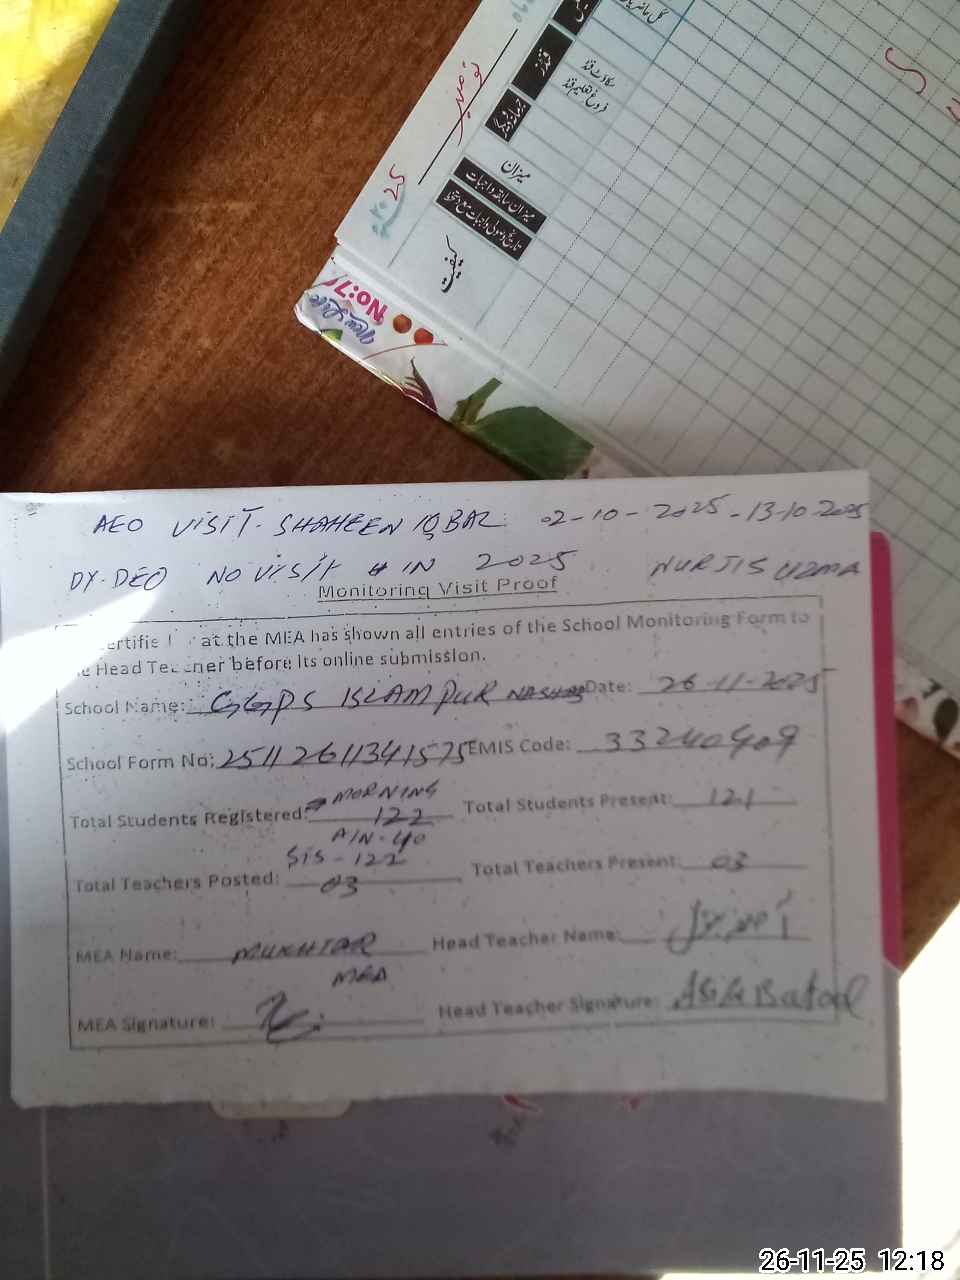 نومبر
25
گل حاضریاں
فنڈز
سکاؤٹ فنڈ
فروغ تعلیم فنڈ
میزان
میزان سابقہ واجبات
تاریخ وصولی واجبات مع دستخط
کیفیت
No:7
New Life
AEO VISIT. SHAHEEN IQBAL. 02-10-2025-13-10-2025
DY.DEO NO VISIT IN 2025 NURJIS UZMA
Monitoring Visit Proof
at the MEA has shown all entries of the School Monitoring Form to
Head before its online submission.
School Name: GGPS ISLAMPUR Date: 26-11-2025
School Form No: 25112611341575 EMIS Code: 33240409
MORNING
Total Students Registered: 122 Total Students Present: 121
A/N-40
SIS-122
Total Teachers Posted: 03 Total Teachers Present: 03
MEA Name: MUKHTAR Head Teacher Name:
MEA
MEA Signature: Head Teacher Signature: Batool
26-11-25 12:18